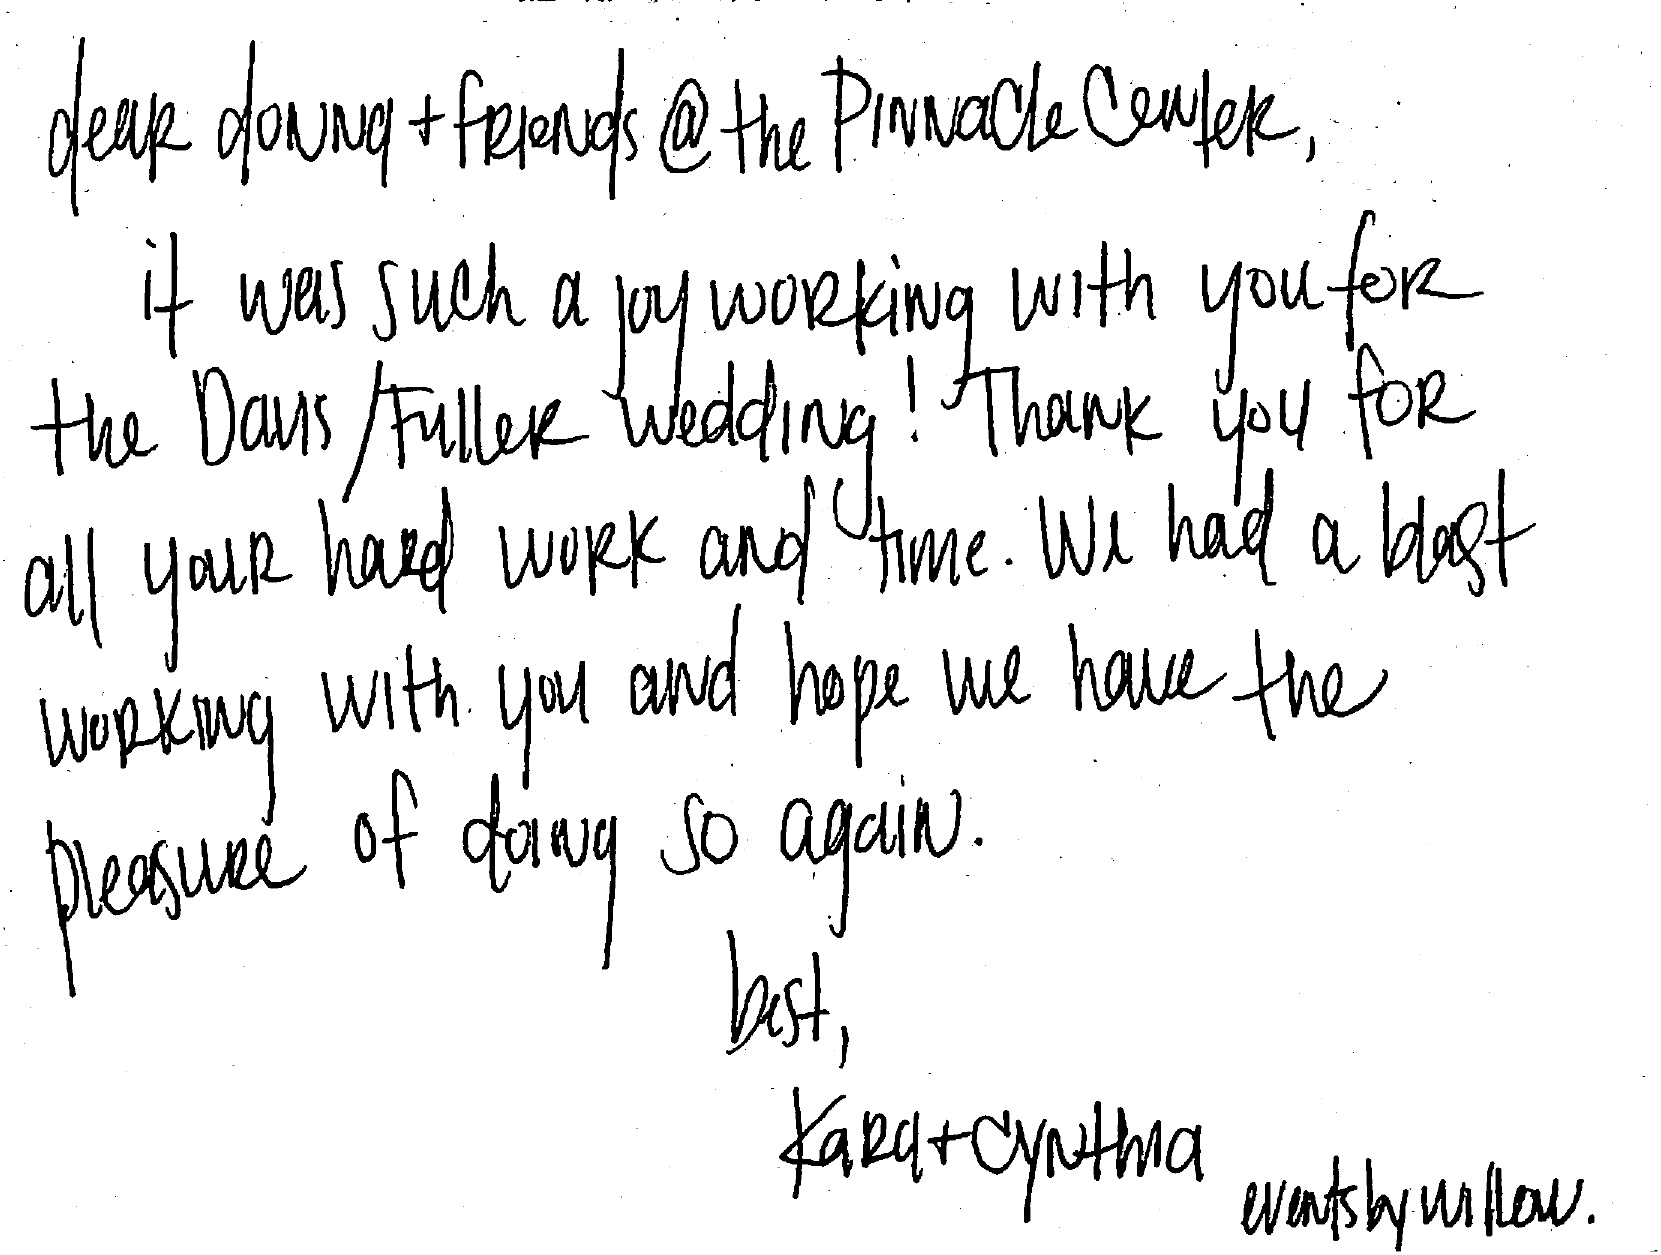 dear donna + friends @ the Pinnacle Center,
it was such a joy working with you for
the Davis/Fuller wedding! Thank you for
all your hard work and time. We had a blast
working with you and hope we have the
pleasure of doing so again.
best,
Kara + Cynthia
events by willow.